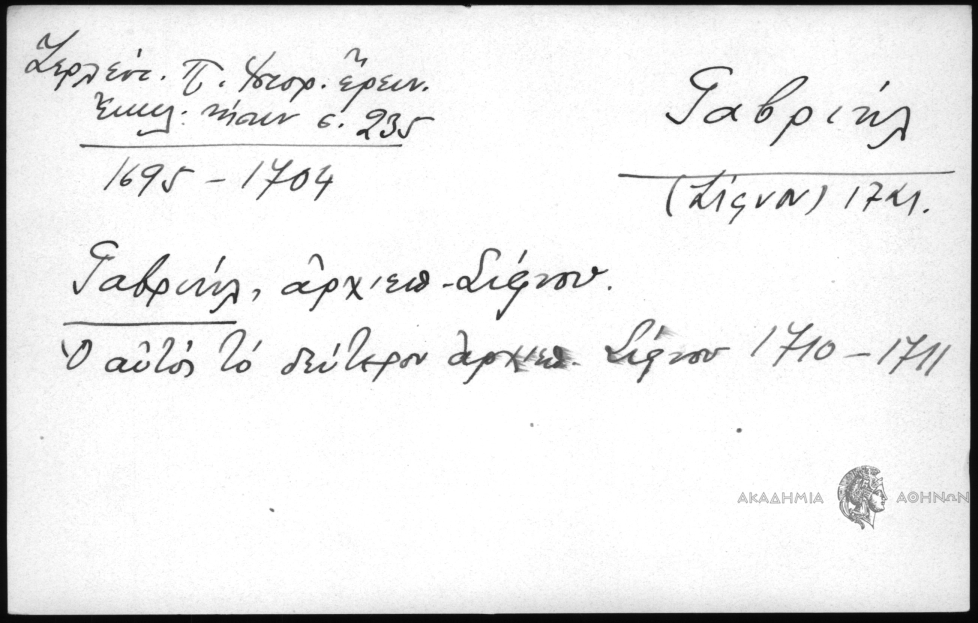 Ζερλέντ. Π. Ἱστορ. ἔρευν.
Ἐκκλ. νήσων σ. 235
1695 – 1704
Γαβριήλ
(Σίφνου)
Γαβριήλ, ἀρχιεπ. Σίφνου.
Ὁ αὐτὸς τὸ δεύτερον ἀρχιεπ. Σίφνου 1710 – 1711
ΑΚΑΔΗΜΙΑ ΑΘΗΝΩΝ